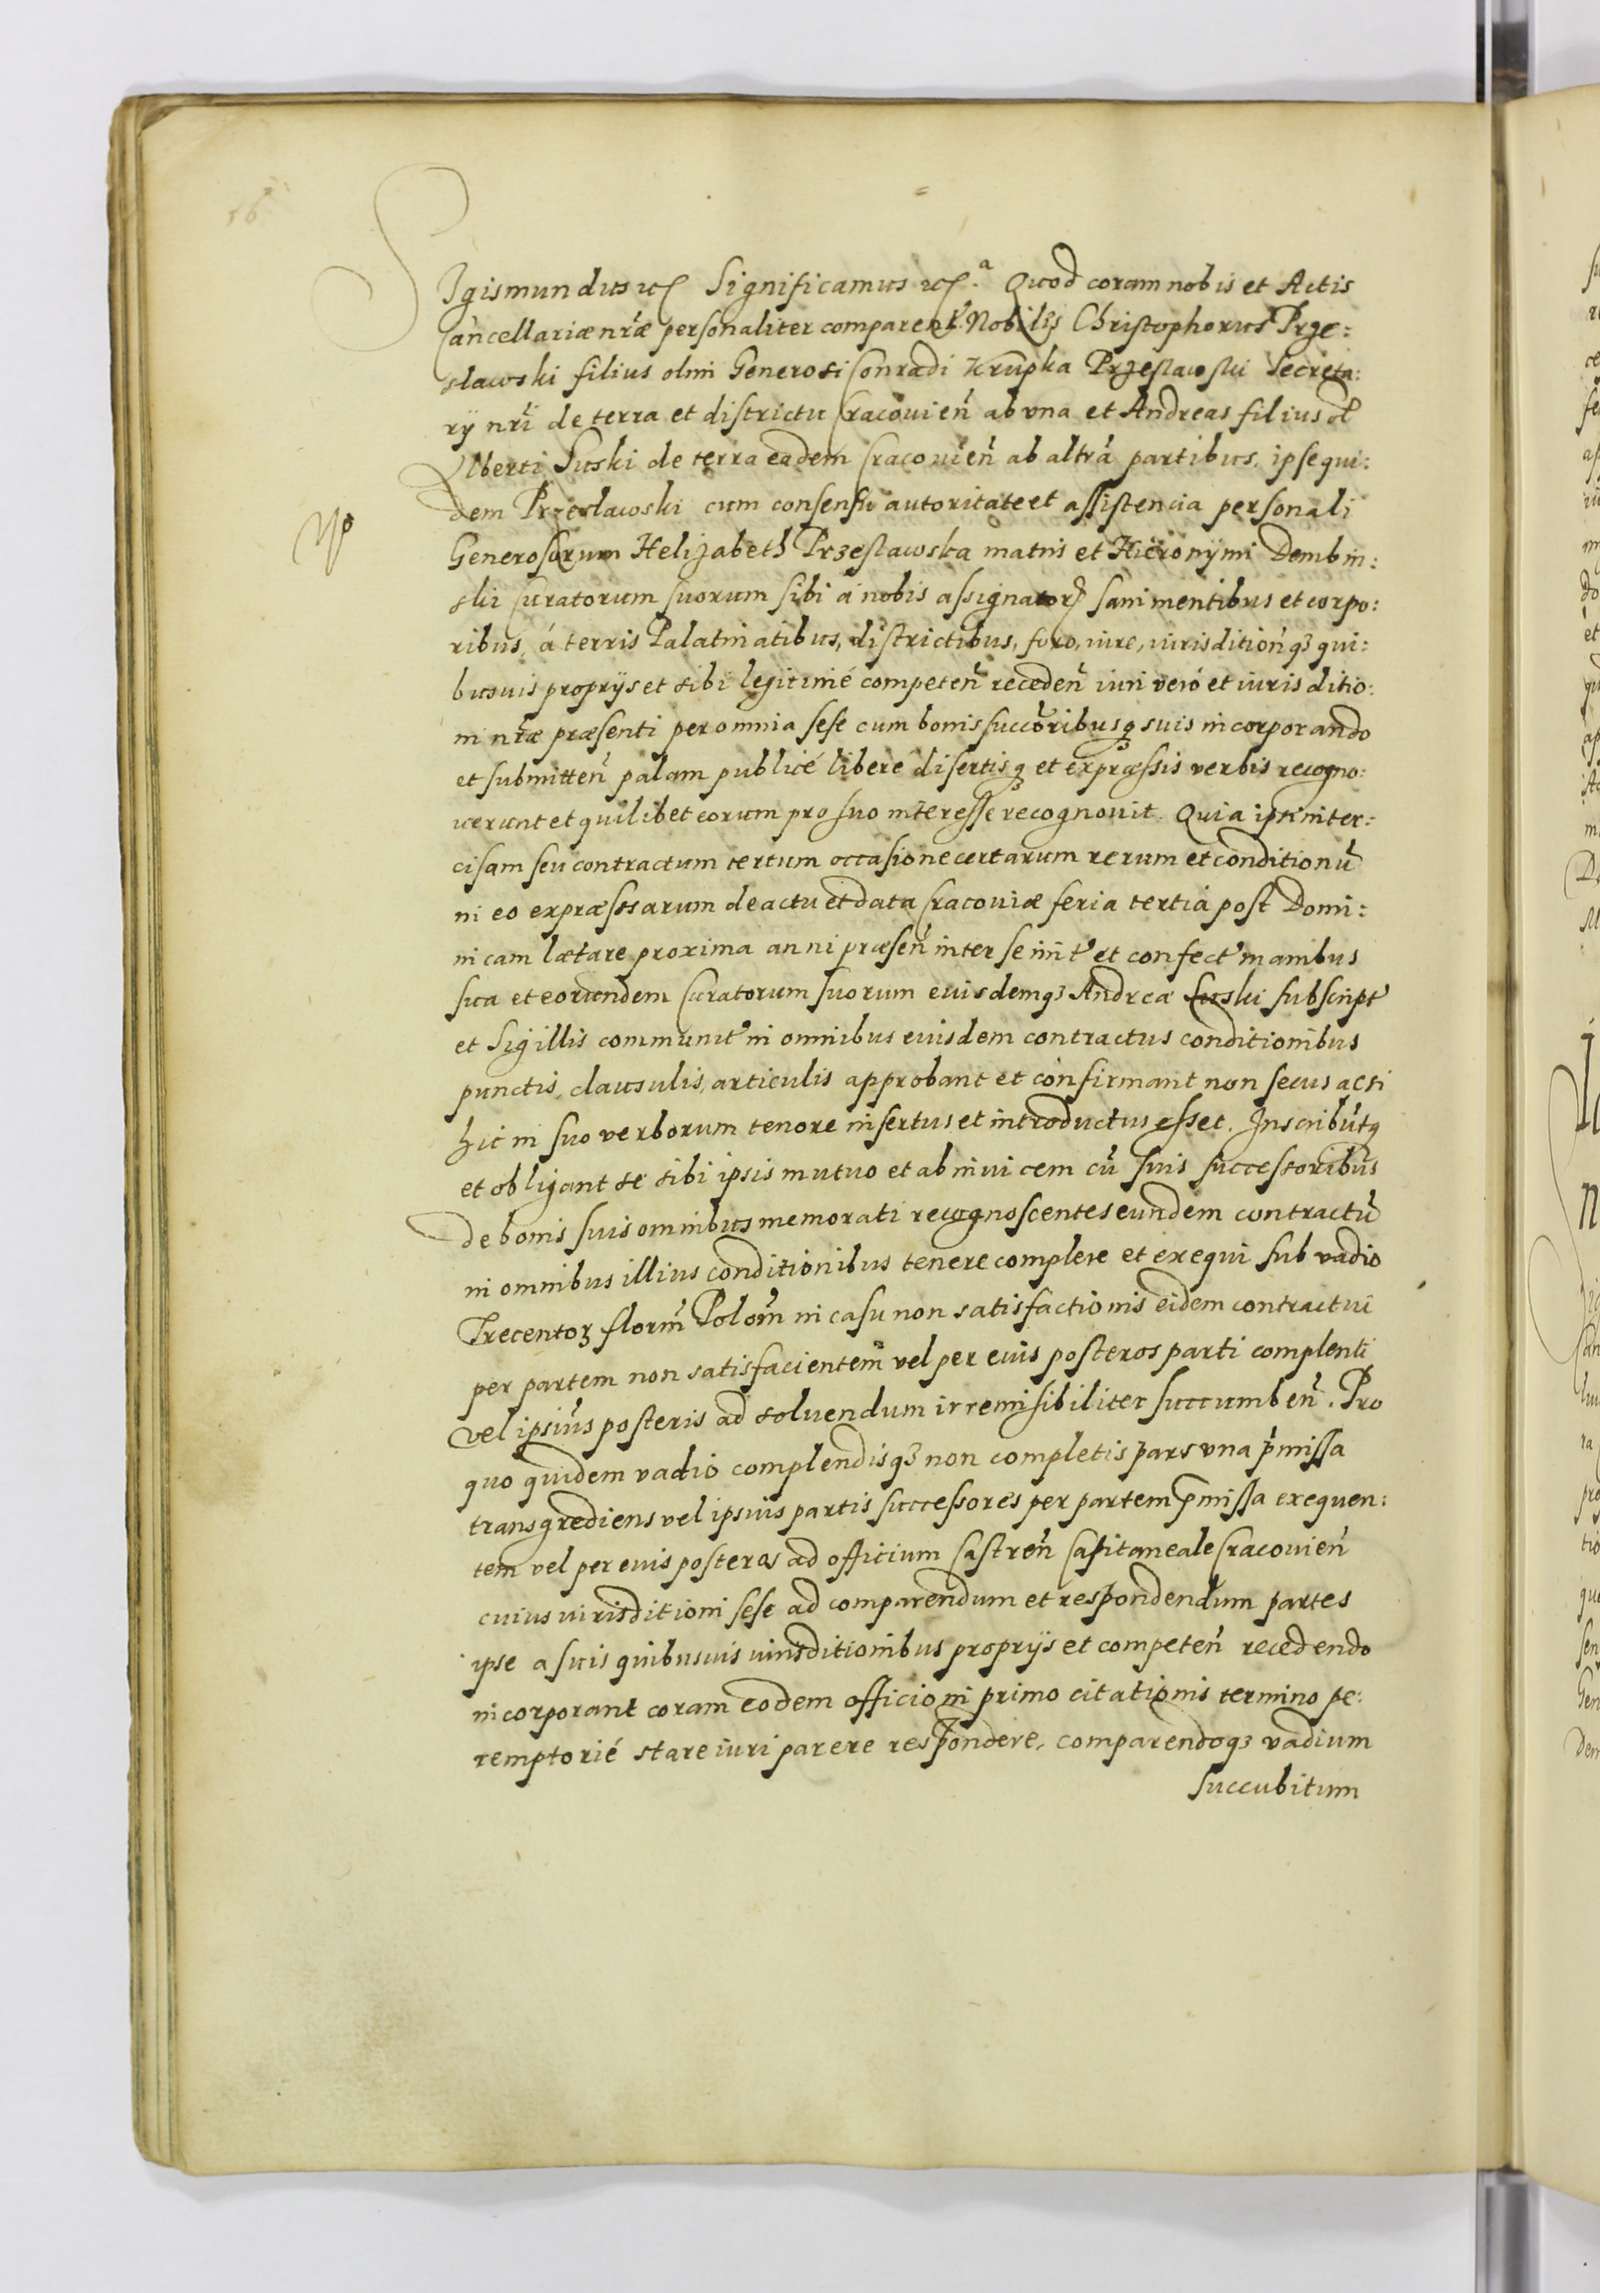 Sigismundus etc Significamus etc.ᵃ Quod coram nobis et Actis
Cancellariæ nr̃æ personaliter comparen̄ Nobiles Christophorus Prze:
slawski filius olim Generosi Conradi Krupka Przeslawski Secreta:
rÿ nr̃i de terra et districtu Cracouien̄ ab vna et Andreas filius ol̃
Alberti Suski de terra eadem Cracouien̄ ab altrá partibus, ipse qui:
dem Przeslawski cum consensu autoritate et assistencia personali
Np
Generosorum Helizabeth Przeslawska matris et Hieronÿmi Dembin:
ski Curatorum suorum sibi á nobis assignator̃ sani mentibus et corpo:
ribus, á terris Palatinatibus, districtibus, foro, iure, iurisdition̄qȝ qui:
busuis proprÿs et sibi legitimé competen̄ receden̄ iuri veró et iurisditio:
ni nr̃æ præsenti per omnia sese cum bonis succr̃oribusqȝ suis incorporando
et submitten̄ palam publicé liberé disertisqȝ et expræssis verbis recogno:
uerunt et quilibet eorum pro suo interesse recognouit. Quia ipsi inter:
cisam seu contractum certum occasione certarum rerum et conditionū
in eo expræssarum de actu et data Cracouiæ feria tertiá post Domi:
nicam lætare proxima anni præsen̄ inter se init̃ et confect̃ manibus
sua et eorundem Curatorum suorum eiusdemqȝ Andreæ Suski subscript̃
et Sigillis communit̃ in omnibus eiusdem contractus conditionibus
punctis, clausulis, articulis approbant et confirmant non secus acsi
hic in suo verborum tenore insertus et introductus esset. Inscribūtqȝ
et obligant se sibi ipsis mutuo et ab inuicem cū suis successoribus
de bonis suis omnibus memorati recognoscentes eundem contractū
in omnibus illius conditionibus tenere complere et exequi sub vadio
Trecentoȝ florm̄ Polom̄ in casu non satisfactionis eidem contractui
per partem non satisfacientem vel per eius posteros parti complenti
vel ipsius posteris ad soluendum irremisibiliter succumben̄. Pro
quo quidem vadio complendisqȝ non completis pars vna p̃missa
transgrediens vel ipsius partis successores per partem p̃missa exequen:
tem vel per eius posteros ad officium Castren̄ Capitaneale Cracouien̄
cuius iurisditioni sese ad comparendum et respondendum partes
ipse a suis quibusuis iurisditionibus proprÿs et competen̄ recedendo
incorporant coram eodem officio in primo citationis termino pe:
remptorié stare iuri parere respondere, comparendoqȝ vadium
succubitum